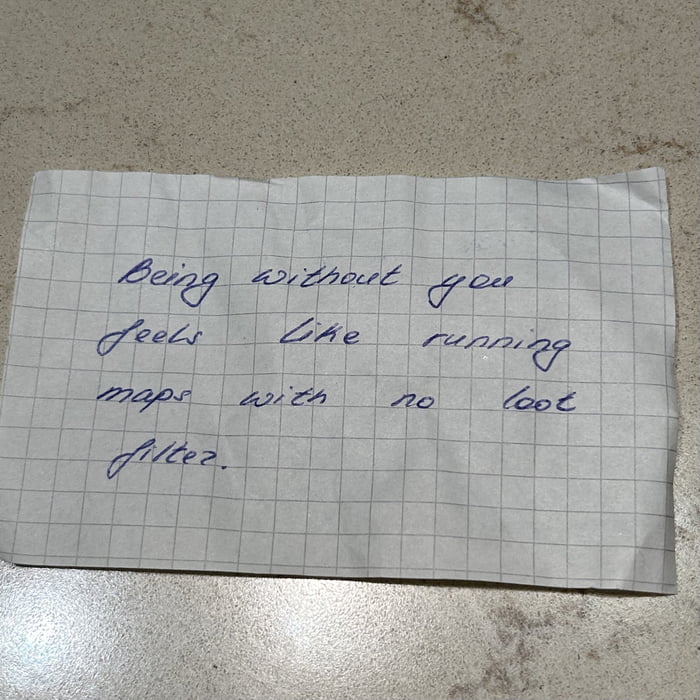 Being without you
feels like running
maps with no loot
filter.